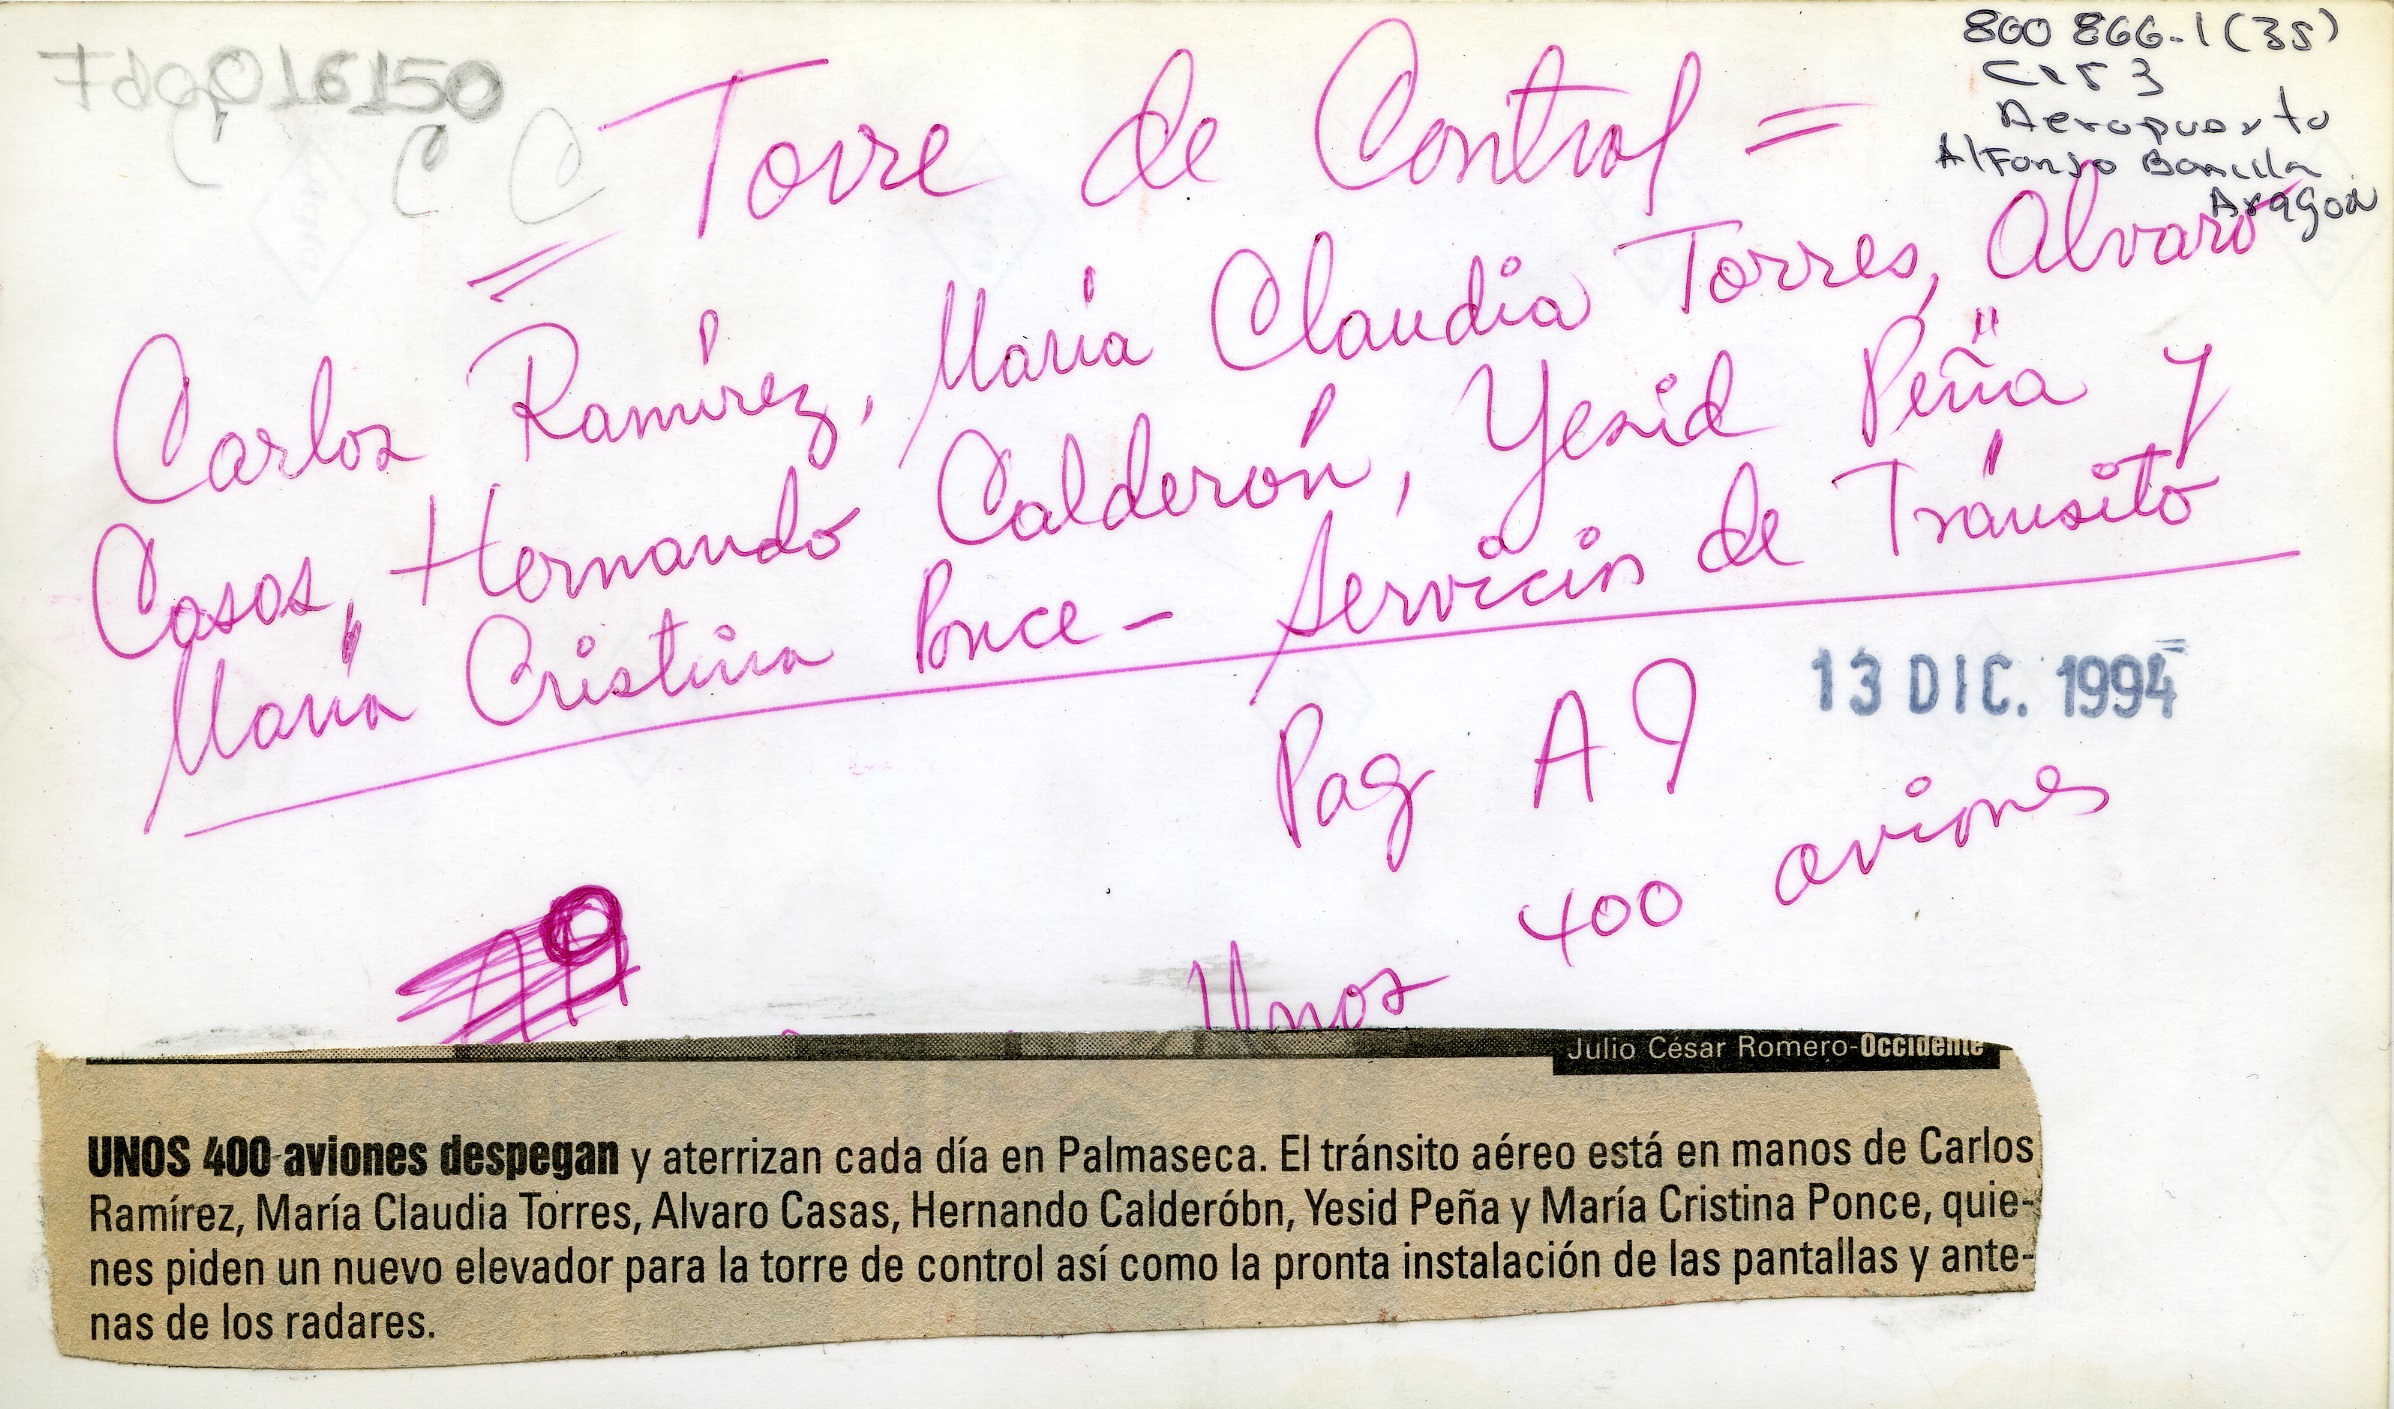 800 866-1 (35)
Aeropuerto
Alfonso Bonilla
Aragon
016150
= Torre de Control =
Carlos Ramírez, María Claudia Torres, Alvaro
Casas, Hernando Calderón, Yesid Peña y
María Cristina Ponce - Servicio de Tránsito
13 DIC. 1994
Pag A 9
Unos 400 aviones
Julio César Romero-Occidente
UNOS 400 aviones despegan y aterrizan cada día en Palmaseca. El tránsito aéreo está en manos de Carlos
Ramírez, María Claudia Torres, Alvaro Casas, Hernando Calderóbn, Yesid Peña y María Cristina Ponce, quie-
nes piden un nuevo elevador para la torre de control así como la pronta instalación de las pantallas y ante-
nas de los radares.